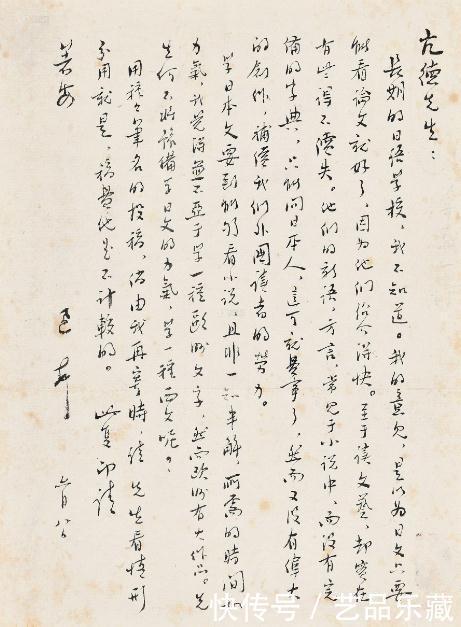 亢德先生：
長期的日語學校，我不知道。我的意見，是以為日文只要
能看論文就好了，因為他們紹介得快。至于讀文藝，却實在
有些得不償失。他們的新語，方言，常見于小說中，而沒有完
備的字典，只能問日本人，這可就費事了，然而又沒有偉大
的創作，補償我們外國讀者的勞力。
學日本文要到能夠看小說，且非一知半解，所需的時間和
力氣，我覺得並不亞于學一種歐洲文字，然而歐洲有大作品。先
生何不將豫備學日文的力氣，學一種西文呢？
用種種筆名的投稿，倘由我再寄時，請 先生看情形
分用就是，稿費他是不計較的。 此复即請
著安
迅 上 六月八日
快传号／艺品乐藏